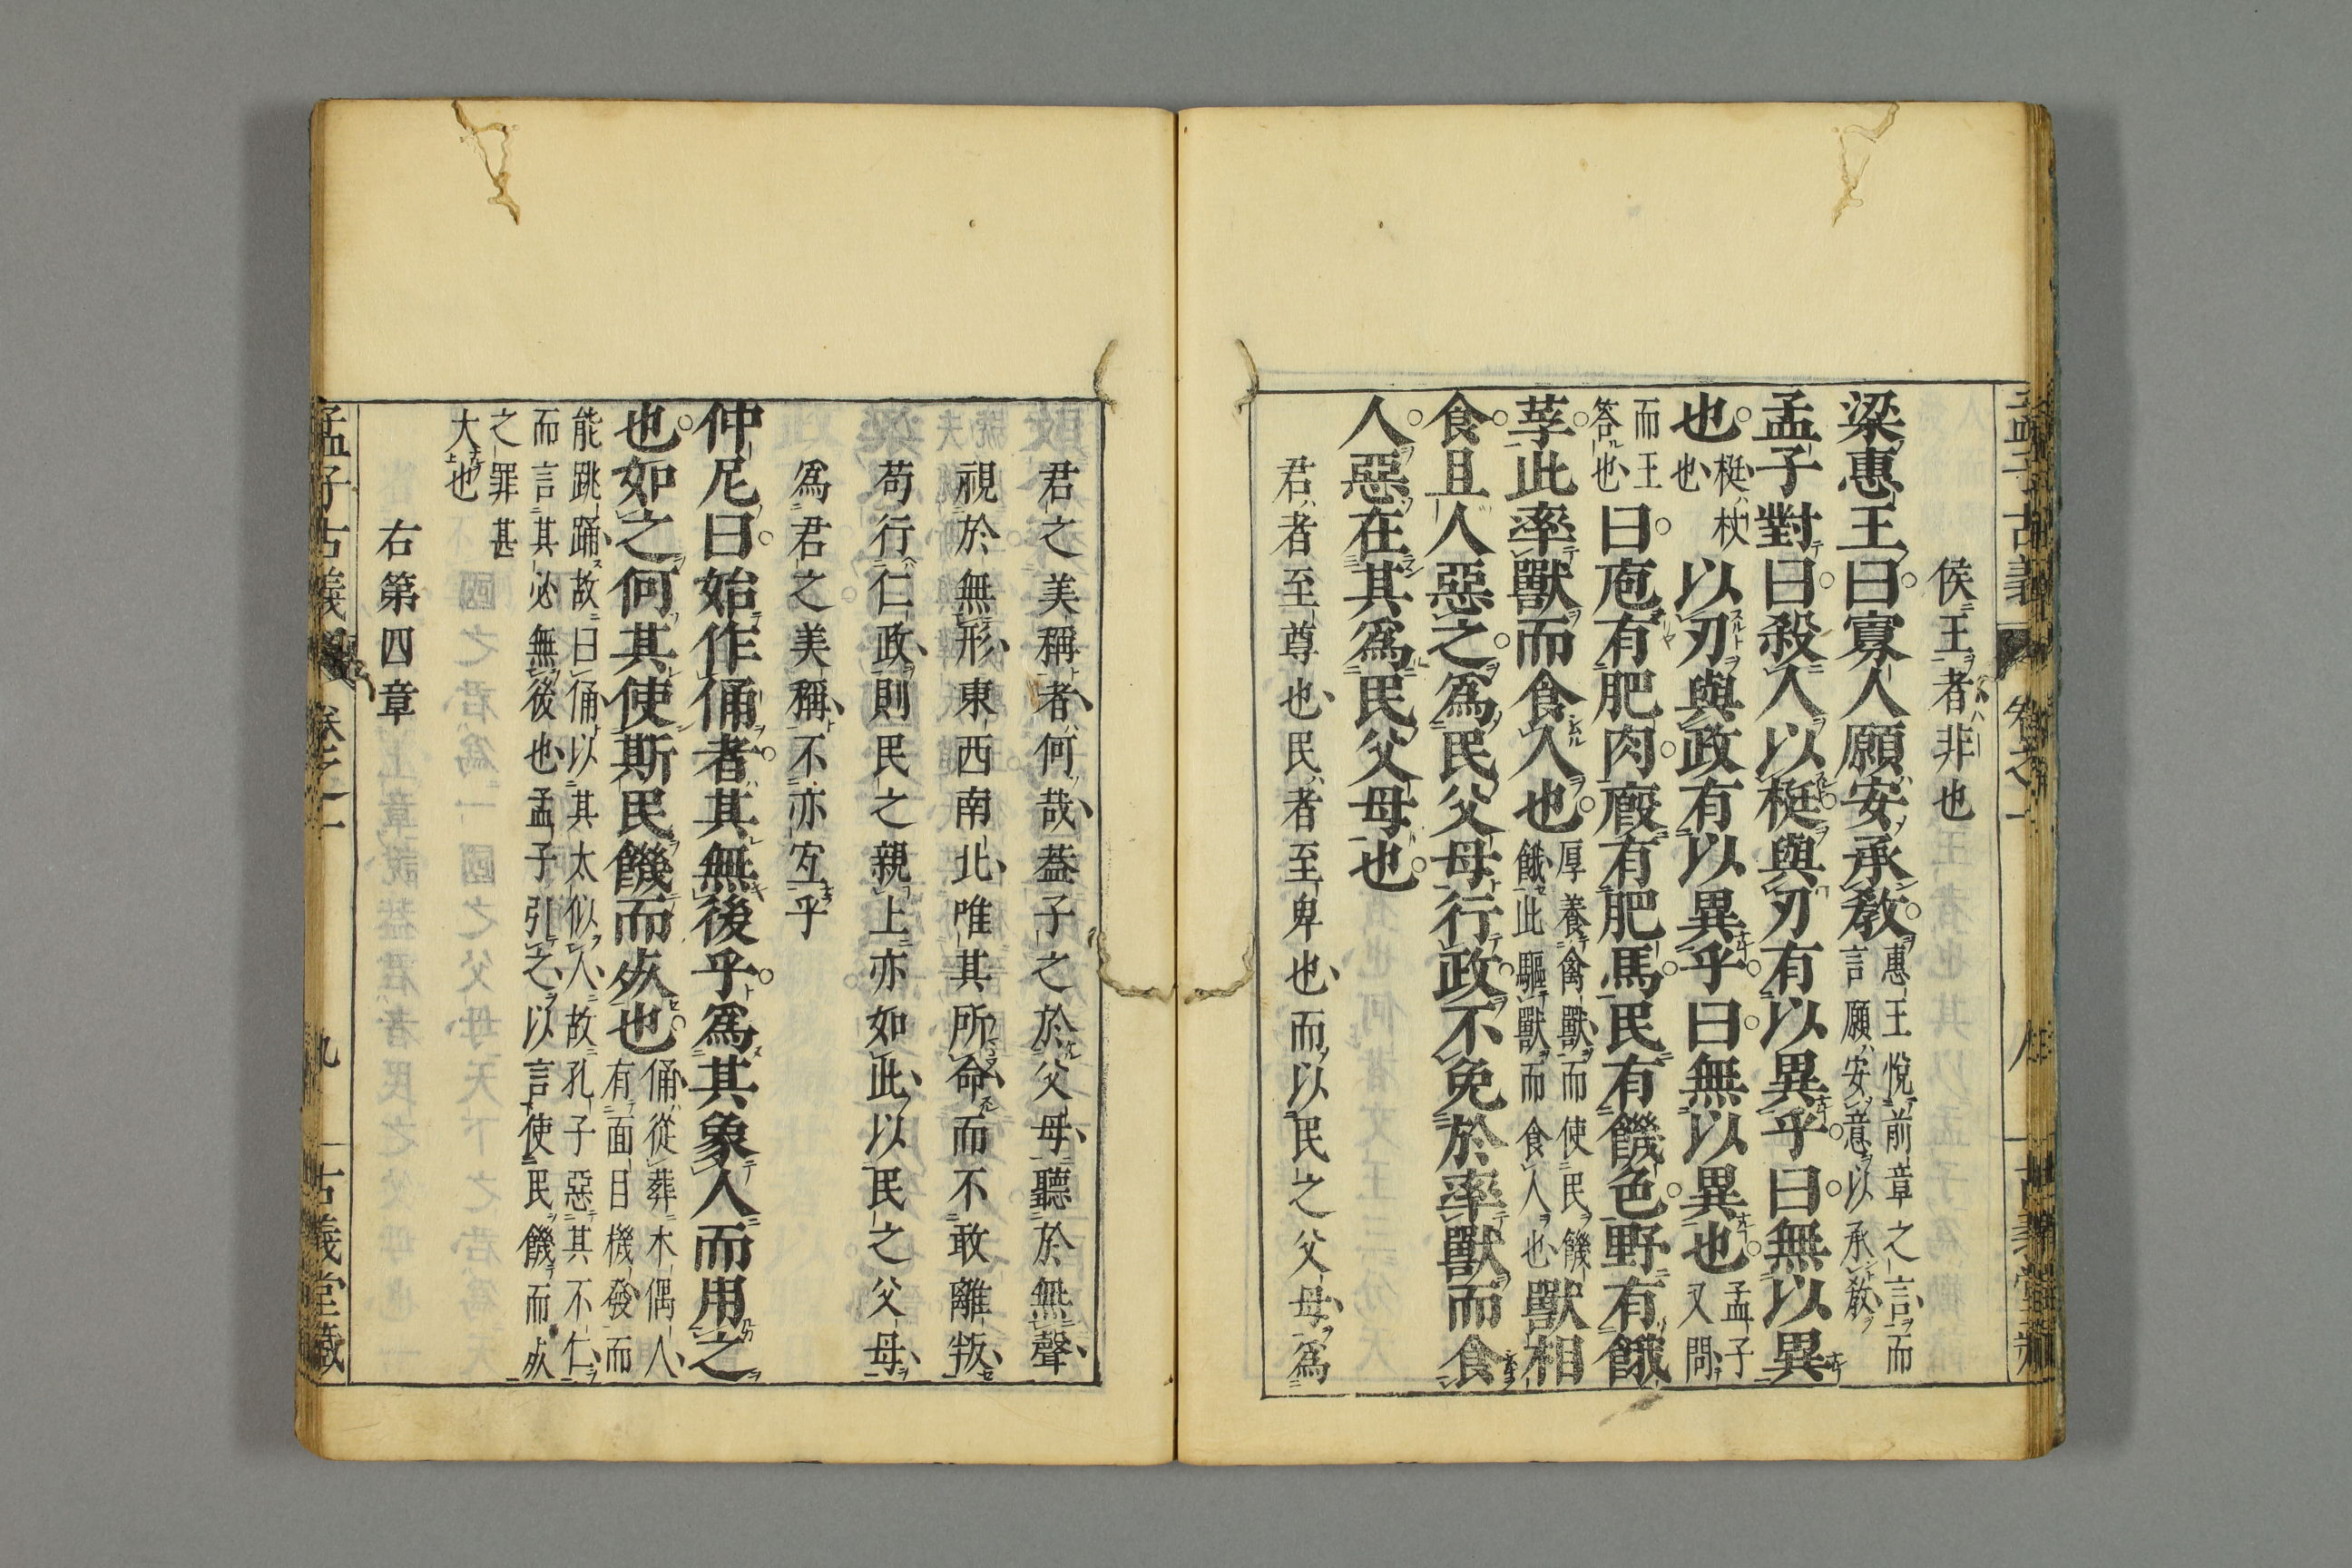 侯王者非也
梁惠王曰寡人願安承敎惠王悅前章之言而
言願安意以承敎
孟子對曰殺人以梃與刃有以異乎曰無以異
也梃杖
也以刃與政有以異乎曰無以異也孟子
又問
而王
答也曰庖有肥肉廐有肥馬民有饑色野有餓
莩此率獸而食人也厚養禽獸而使民饑
餓此驅獸而食人也獸相
食且人惡之爲民父母行政不免於率獸而食
人惡在其爲民父母也
君者至尊也民者至卑也而以民之父母爲
君之美稱者何哉葢子之於父母聽於無聲
視於無形東西南北唯其所命而不敢離叛
苟行仁政則民之親上亦如此以民之父母
爲君之美稱不亦宐乎
仲尼曰始作俑者其無後乎爲其象人而用之
也如之何其使斯民饑而死也俑從葬木偶人
有面目機發而
能跳踊故曰俑以其太似人故孔子惡其不仁
而言其必無後也孟子引之以言使民饑而死
之罪甚
大也
右第四章
孟子古義 卷之一 九 古義堂藏